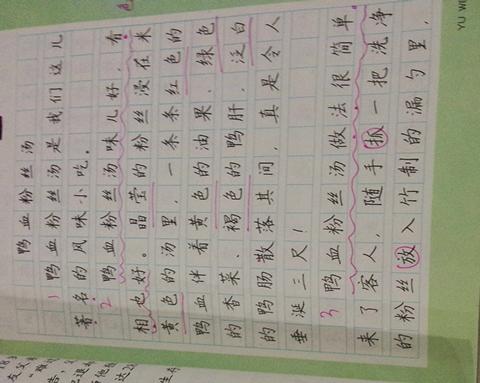 鸭血粉丝汤
1 鸭血粉丝汤是我们这儿
著名的风味小吃。
2 鸭血粉丝汤味儿好,看
相也好。晶莹的粉丝浸在米
黄色的汤里,一条条红色的
鸭血伴着黄色的油果、绿色
的香菜、褐色的鸭肝、泛白
的鸭肠散落其间,真是令人
垂涎三尺!
3 鸭血粉丝汤做法很简单
来了客人,随手抓一把洗净
的粉丝放入竹制的漏勺里,